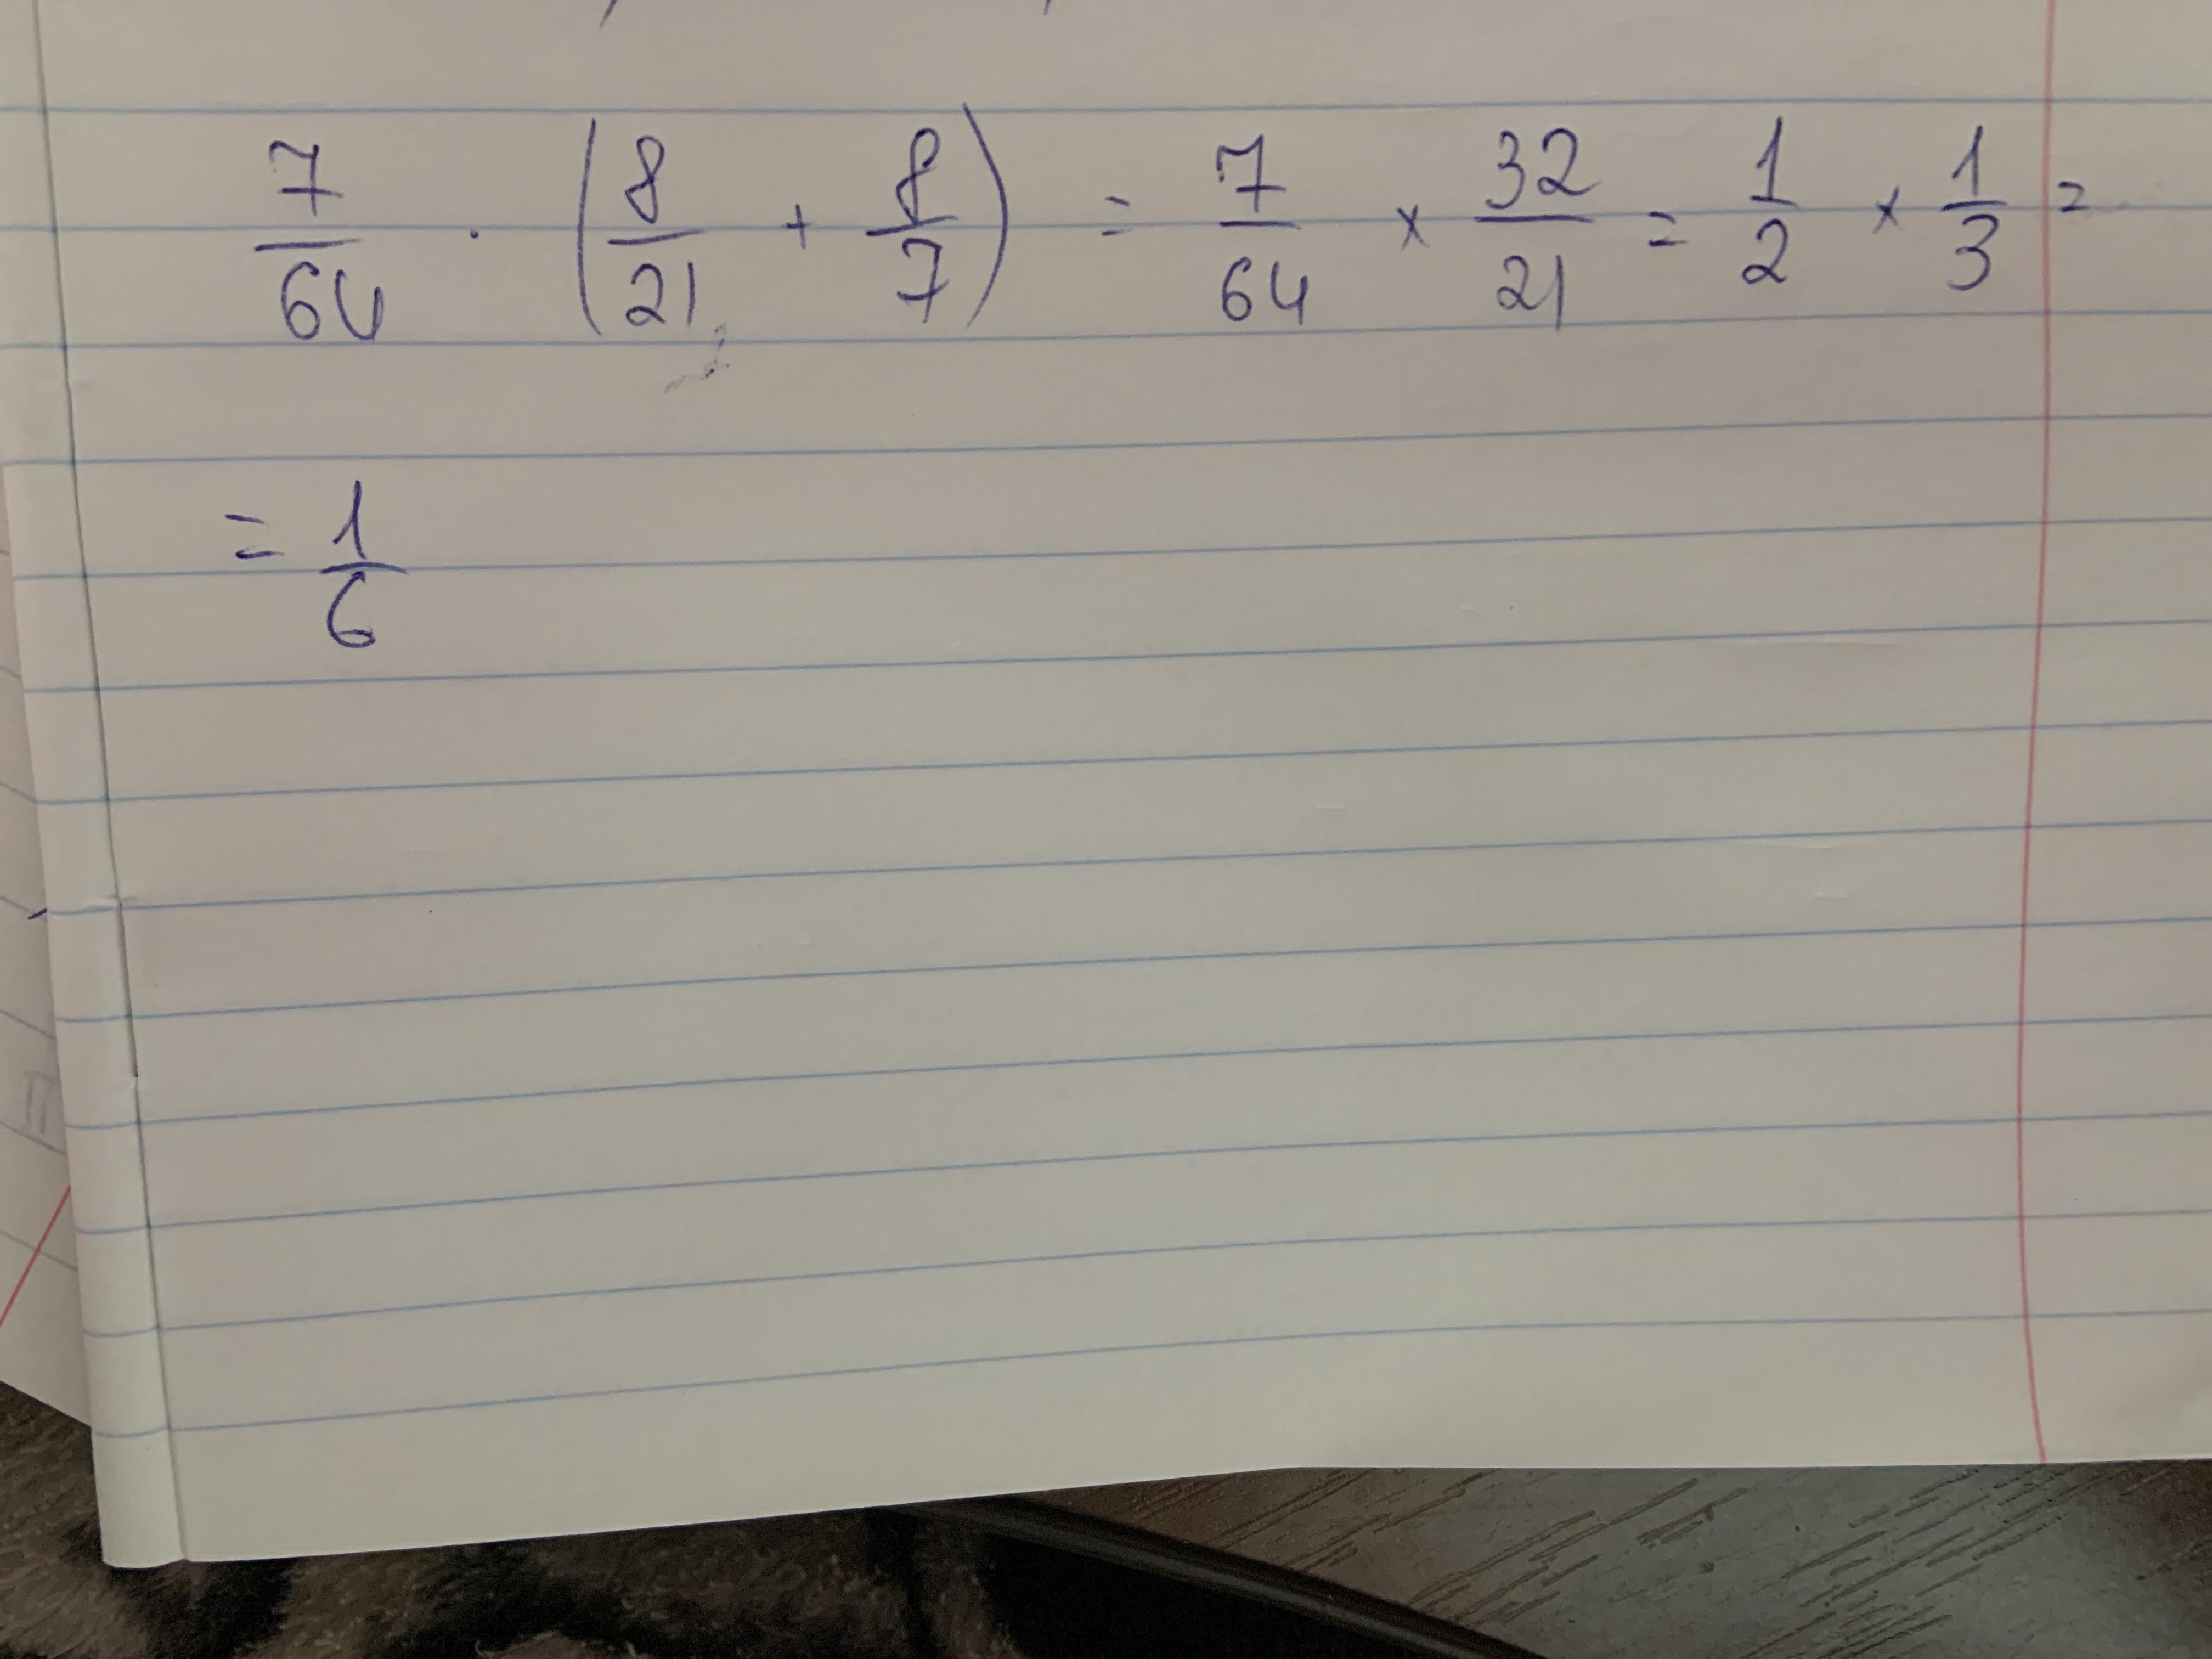 7/64 · (8/21 + 8/7) = 7/64 × 32/21 = 1/2 × 1/3 =
= 1/6